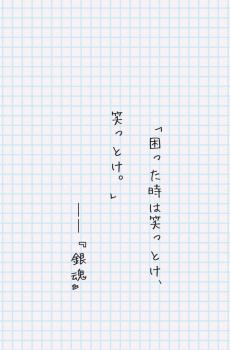 「困った時は笑っとけ、
笑っとけ。」
——『銀魂』